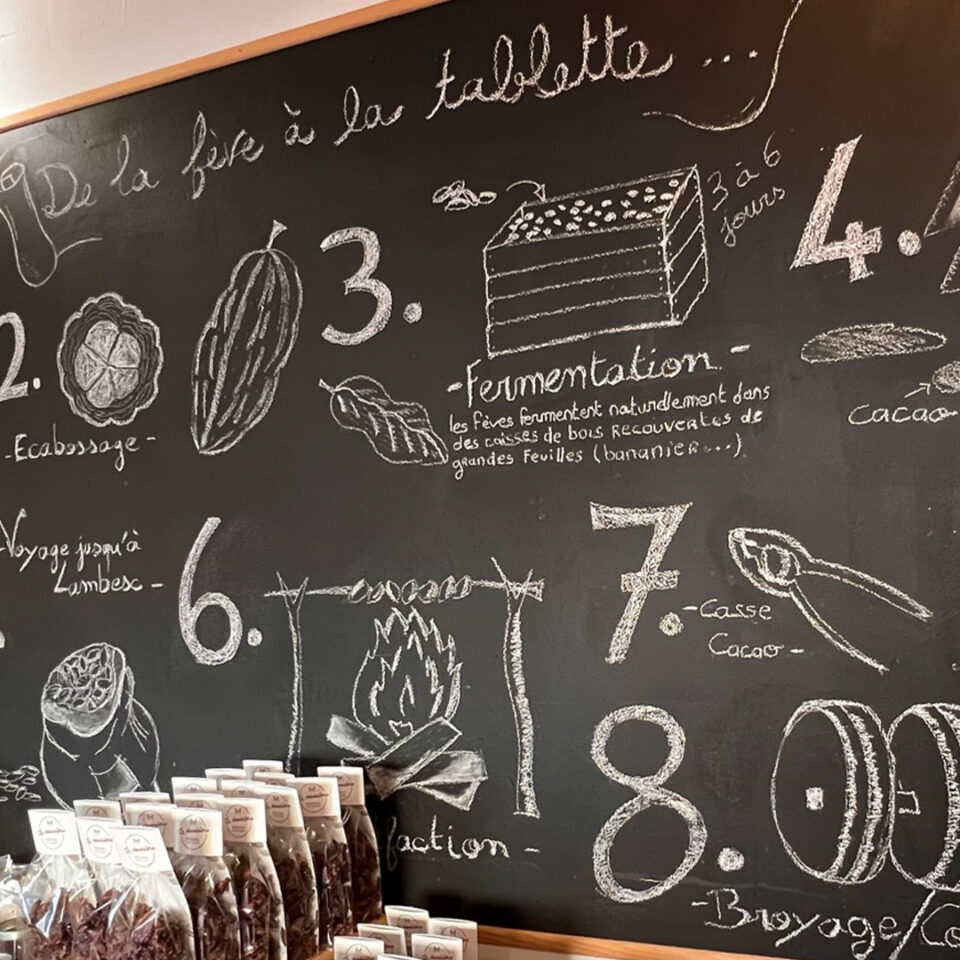 De la fève à la tablette ...
2.
- Ecabossage -
3.
3 à 6
jours
- Fermentation -
les fèves fermentent naturellement dans
des caisses de bois recouvertes de
grandes feuilles (bananier...)
4.
cacao
Voyage jusqu'à
Lambesc -
6.
faction -
7.
- Casse
Cacao -
8.
- Broyage/Co